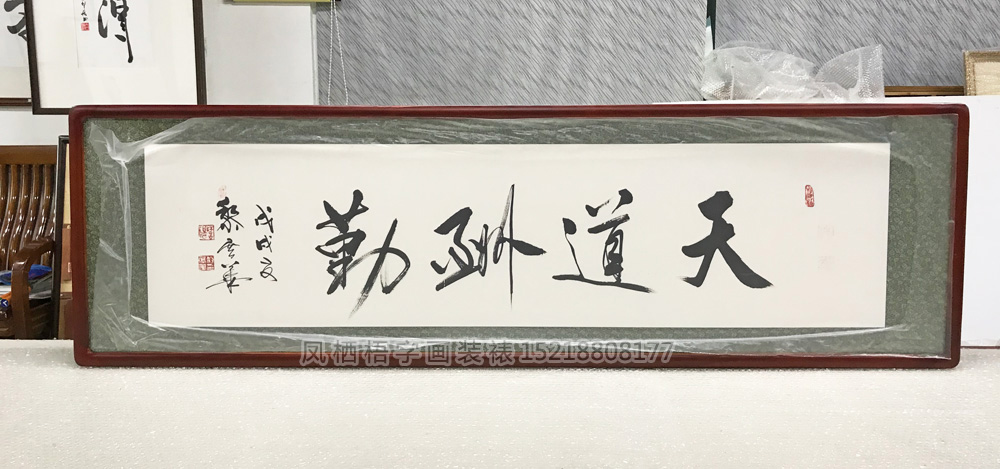 天道酬勤
戊戌夏
黎雲華
凤栖梧字画装裱 15218808177